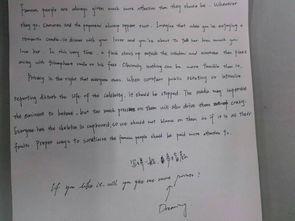 Famous people are always given much more attention than they should be. Wherever
they go, Cameras and the paparazzi always appear
romantic candle-lit dinner with your lover and you're about to tell her how much you
love her. In this very time, a flash shows up outside the window and
away with triumphant smile on his face. Obviously nothing can be more terrible than
Privacy is the right that everyone owns. When constant public
reporting disturb the life of the celebrity, it should be stopped. The media may supervise
the eminent to behave, but too much pressure on them will also drive them crazy.
Everyone has the skeleton in cupboard, so we should not blame on them as if it is all their
faults. Proper ways to scrutinize the famous people should be paid more attention to.
If you like it, will you give me one more
Dreaming